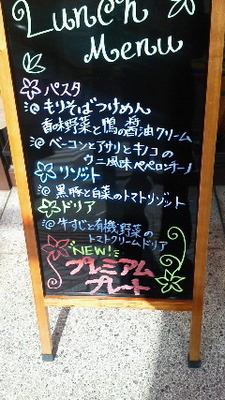 Lunch
Menu
パスタ
もりそばつけめん
香味野菜と鴨の醤油クリーム
ベーコンとアサリとキノコの
ウニ風味ペペロンチーノ
リゾット
黒豚と白菜のトマトリゾット
ドリア
牛すじと有機野菜の
トマトクリームドリア
NEW!
プレミアム
プレート